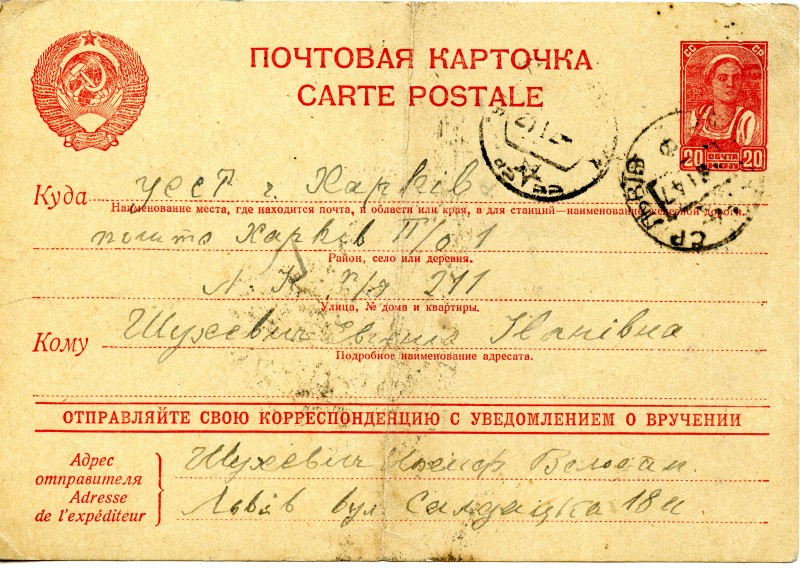 ПОЧТОВАЯ КАРТОЧКА
CARTE POSTALE
СС СР
20 ПОЧТА 20
Куда УССР г. Харків
Наименование места, где находится почта, и области или края, а для станций—наименование железной дороги.
пошта Харків П/о 1
Район, село или деревня.
п/я 211
Улица, № дома и квартиры.
Кому Шухевич Євгенія Іванівна
Подробное наименование адресата.
ОТПРАВЛЯЙТЕ СВОЮ КОРРЕСПОНДЕНЦИЮ С УВЕДОМЛЕНИЕМ О ВРУЧЕНИИ
Адрес отправителя
Adresse de l'expéditeur
Шухевич
Львів вул.